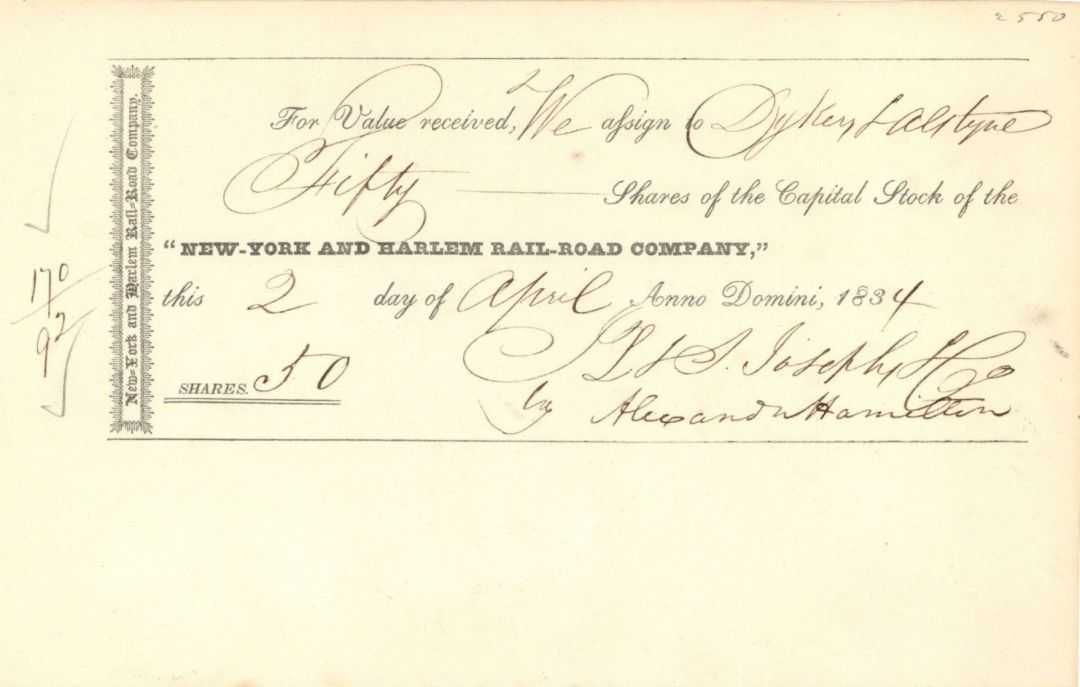 2550
For Value received, We assign to Dykers & Alstyne
Fifty Shares of the Capital Stock of the
"NEW-YORK AND HARLEM RAIL-ROAD COMPANY,"
this 2 day of April Anno Domini, 1834
SHARES. 50
J L & S. Joseph & Co
by Alexander Hamilton
New-York and Harlem Rail-Road Company.
170
92